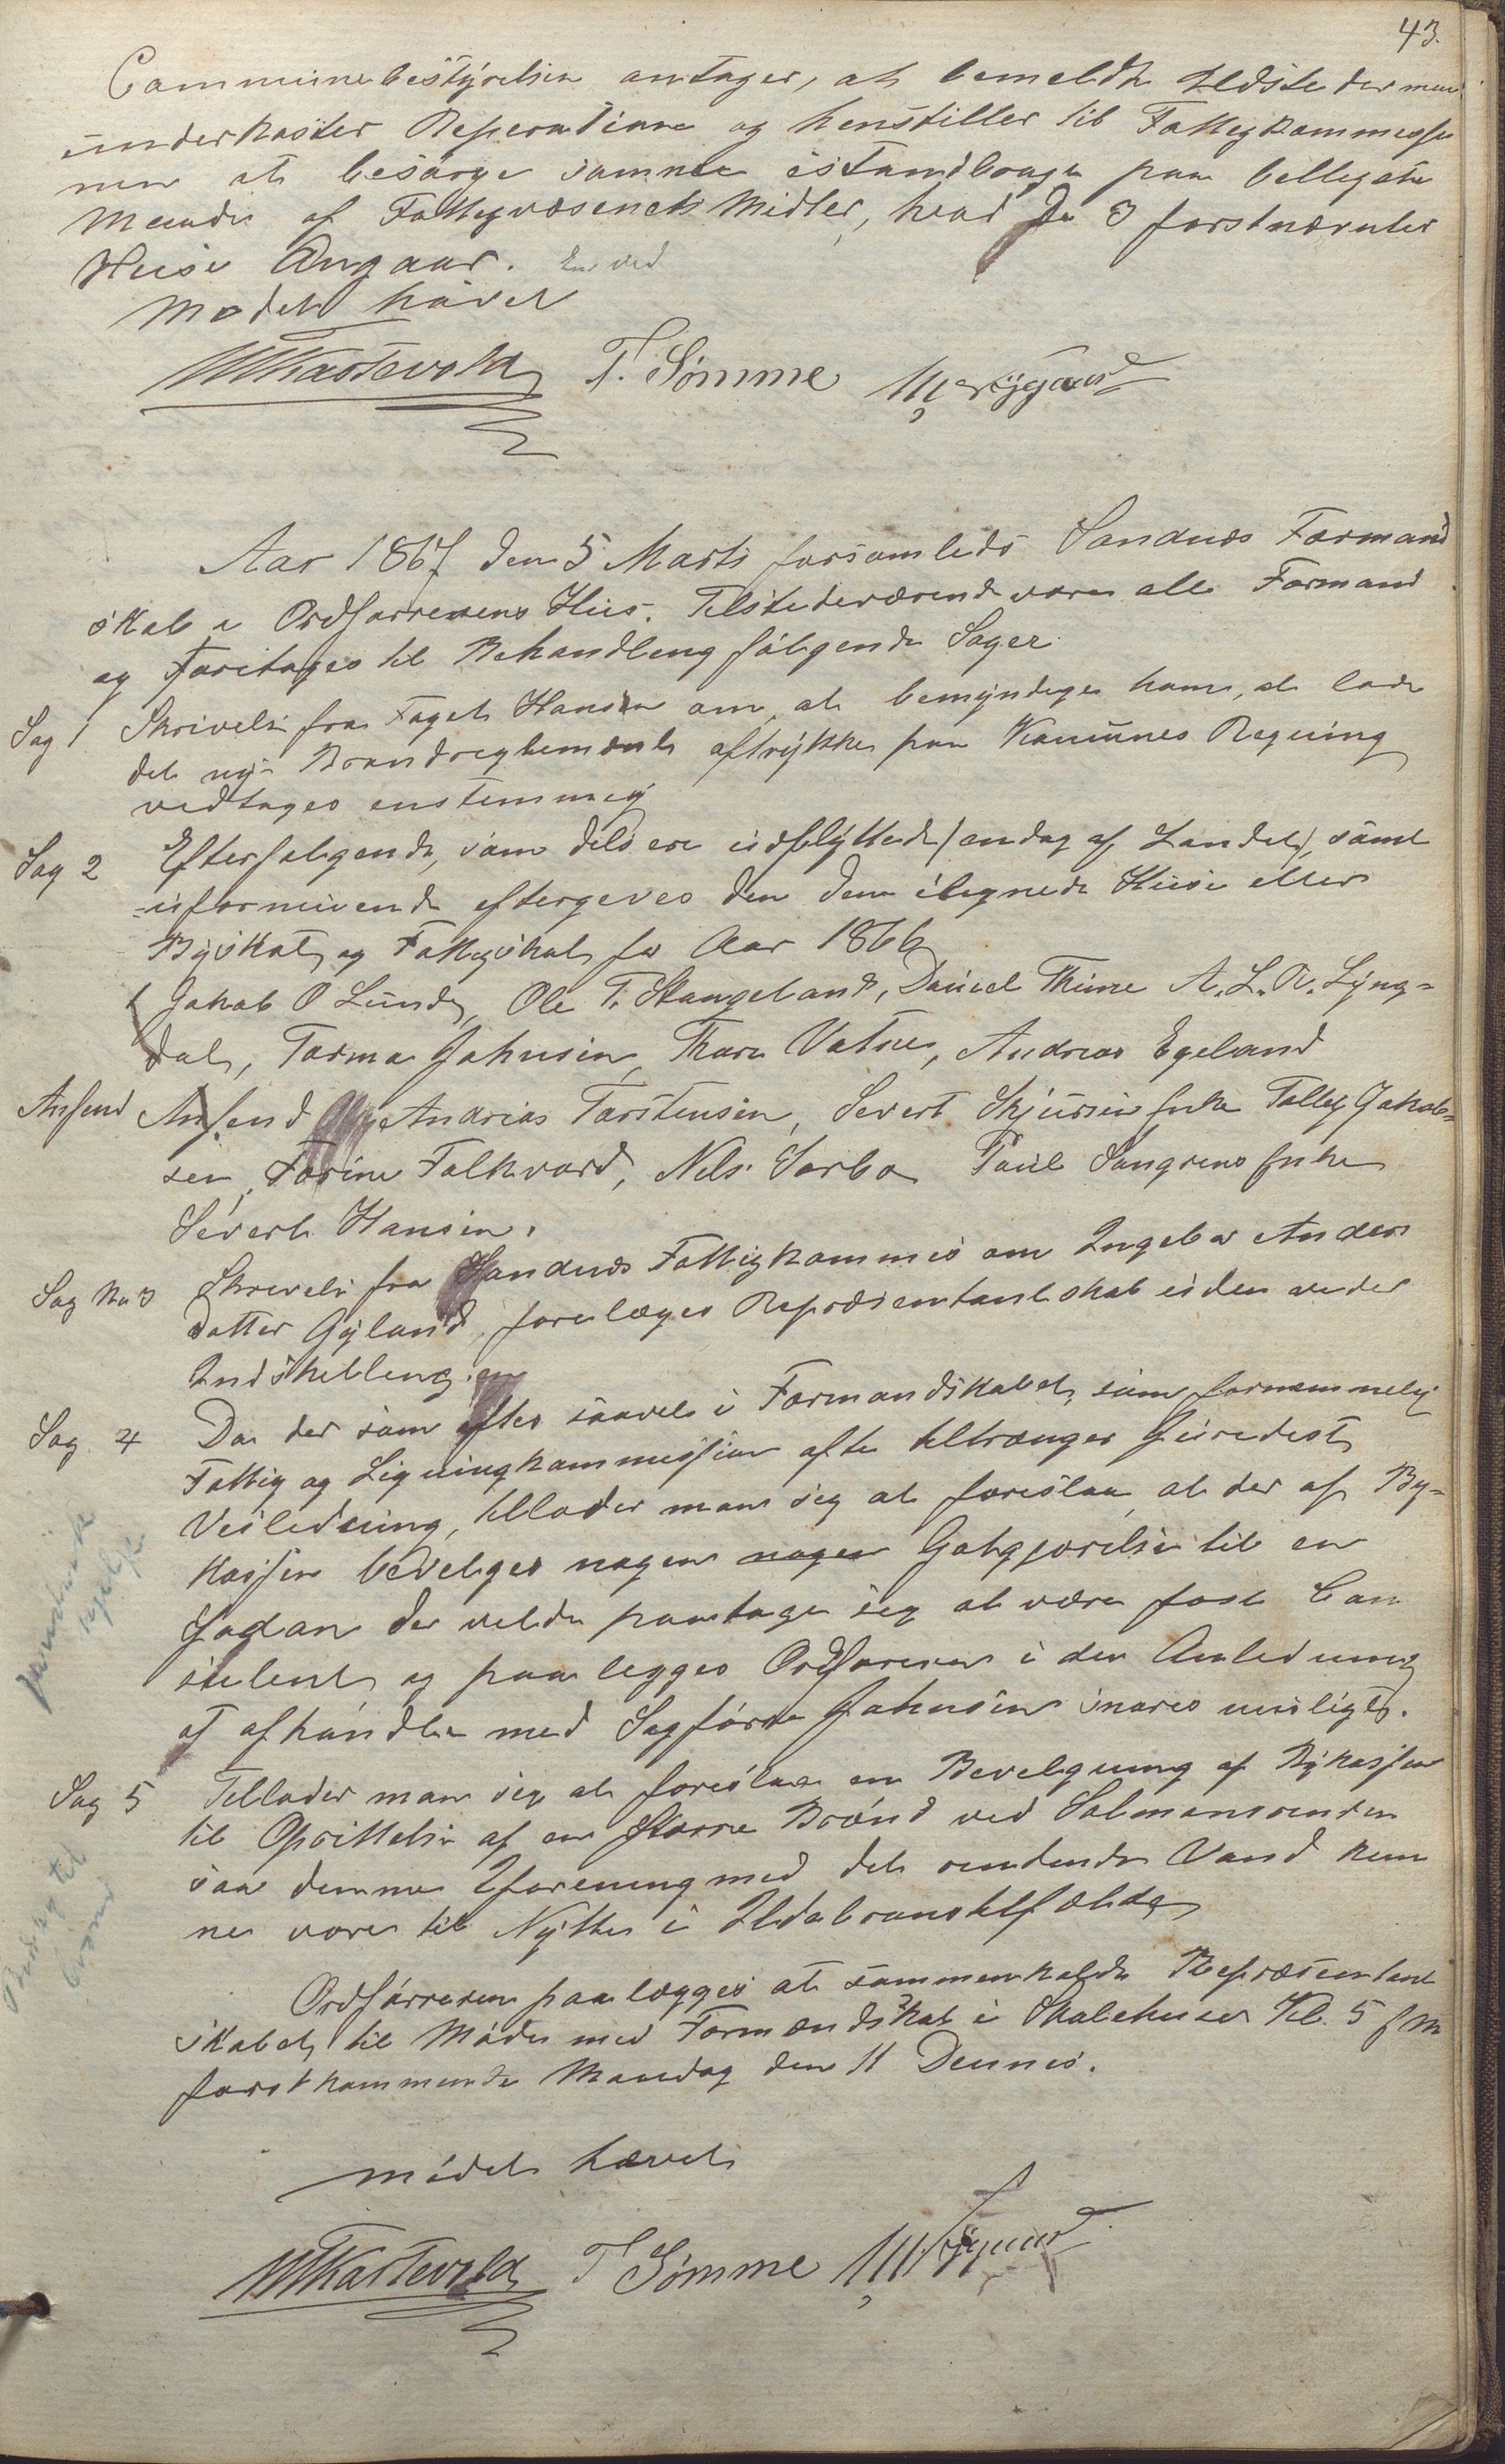 43.
Communebestyrelsen antager, at bemeldte Udstedermeen
underkaster Reperatione og henstiller til Fattigkommissio
nen at besørge samme istandbragt paa belleigste
Maade af Fattigvæsenets Midler, hvad De 3 forstnævnte
Huse Angaar.
Mødet hævet
T. Sömme
Aar 1867 den 5 Marts forsamledes Sandnes Formand
skab i Ordførrerens Huus. Tilstedeværende vare alle Formænd
og foretages til Behandling følgende Sager
Sag 1 Skrivelse fra Foget Hansen om at bemyndiges ham, at lade
det nye Brandreglement aftrykke paa Kommunes Regning
vedtages enstemmig
Sag 2 Efterfølgende, som dels ere udflyttede (endog af Landet), samt
uformuende eftergives den dem ilignede Huse eller
Byskat og Fattigskat for Aar 1866
Jakob O Lunde, Ole T. Stangeland, Daniel Thime A. L. O. Lyng-
dal, Torma Johnsen, Thore Vatne, Andreas Egeland
Anfend Anfend Andreas Torstensen, Severt Skjursen Enke Tolleg Jakob-
sen, Torine Folkvord, Nels Sorbo Poul Sangrens Enke
Severt Hansen.
Sag No 3 Skrivelse fra Sandnes Fattigkommis om Ingebor Anders
datter Gyland, forelæges Repræsentantskab uden videre
Indstilling.
Sag 4 Da der som oftes saavel i Formandskabet, som fornemmelig
Fattig og Ligningkommissien ofte tiltrænges Juridisk
Veiledning, tillader man sig at foreslaa at der af By-
kassen bevelges nogen nogen Godtgjørelse til en
Sadan der vilde paatage sig at være fast Con
sulent og paalegges Ordføreren i den Anledning
at afhandle med Sagfører Johnsen snares muligt.
Juridisk
hjelp
Sag 5 Tillader man sig at foreslaa en Bevelgning af Bykassen
til Oprittelse af en Større Brønd ved Salmansrenden
saa denne Iforening med det rendende Vand kun
ne være til Nytte i Ildebranstelfælde
Bidrag til
brønd
Ordførreren paalægges at sammenkalde Repræsentant
skabet til Møde med Formandskab i Skolehuset Kl. 5 f M
førstkommende Mandag den 11 Dennes.
mødet hævet
T Sömme